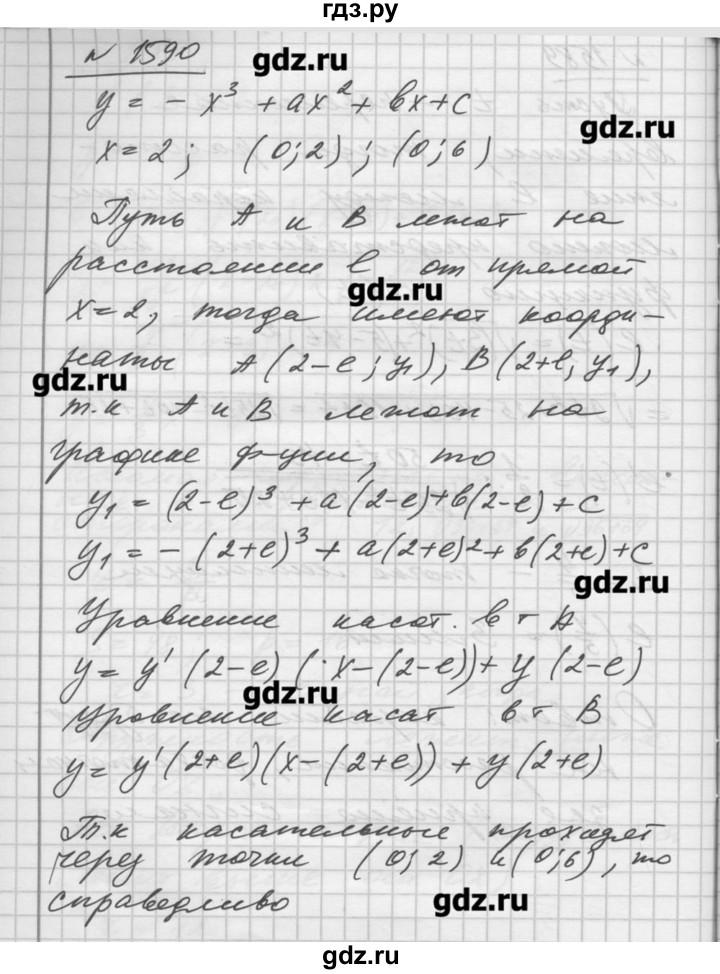 гдз.ру
№ 1590
gdz.ru
y = - x³ + ax² + bx + c
gdz.ru
x = 2; (0; 2); (0; 6)
Путь A и B лежат на
расстоянии l от прямой
gdz.ru
x = 2, тогда имеют коорди-
наты A(2-l; y₁), B(2+l, y₁),
gdz.ru
т.к A и B лежат на
графике ф-ции, то
y₁ = (2-l)³ + a(2-l) + b(2-l) + c
y₁ = - (2+l)³ + a(2+l)² + b(2+l) + c
gdz.ru
Уравнение касат. в т A
y = y' (2-l) (x-(2-l)) + y (2-l)
gdz.ru
Уравнение касат в т B
y = y' (2+l)(x-(2+l)) + y (2+l)
Т.к касательные проходят
через точки (0; 2) и (0; 6), то
справедливо
gdz.ru
gdz.ru